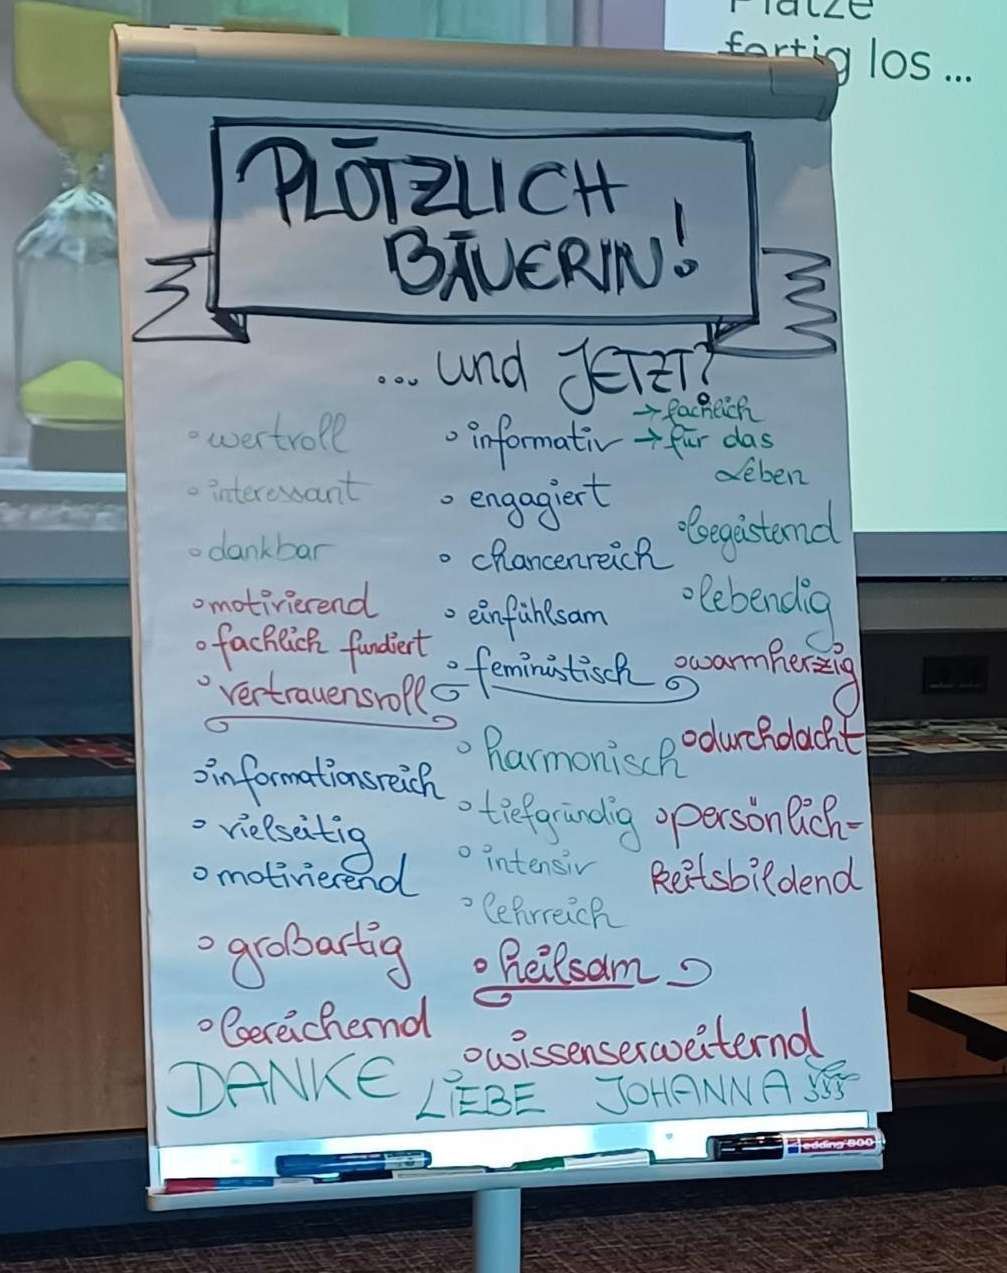 Plätze
fertig los ...
PLÖTZLICH
BÄUERIN!
... und JETZT?
• wertvoll
• interessant
• dankbar
• motivierend
• fachlich fundiert
• vertrauensvoll
• informationsreich
• vielseitig
• motivierend
• großartig
• bereichernd
• informativ → fachlich
→ für das
Leben
• engagiert
• chancenreich
• einfühlsam
• feministisch
• harmonisch
• tiefgründig
• intensiv
• lehrreich
• heilsam
• wissenserweiternd
• begeisternd
• lebendig
• warmherzig
• durchdacht
• persönlich-
keitsbildend
DANKE LIEBE JOHANNA
edding 800